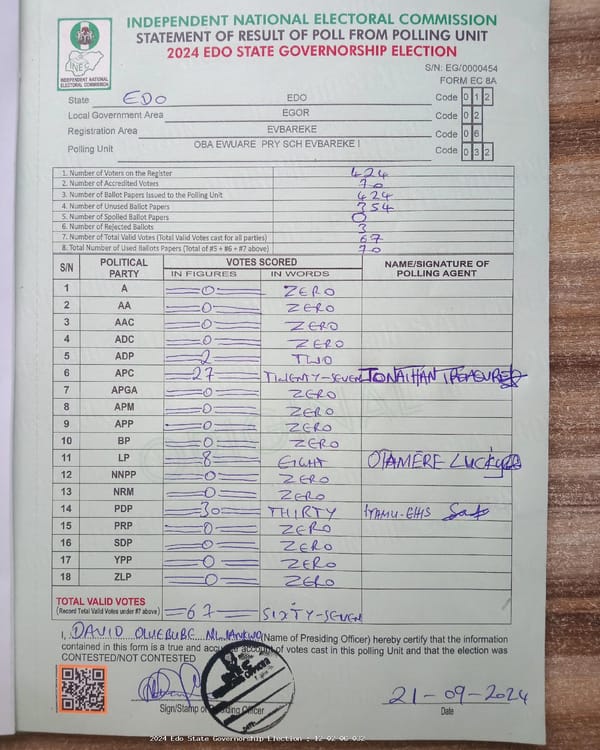 INDEPENDENT NATIONAL ELECTORAL COMMISSION
STATEMENT OF RESULT OF POLL FROM POLLING UNIT
2024 EDO STATE GOVERNORSHIP ELECTION
INEC
INDEPENDENT NATIONAL
ELECTORAL COMMISSION
S/N: EG/0000454
FORM EC 8A
State EDO EDO Code 0 1 2
Local Government Area EGOR Code 0 2
Registration Area EVBAREKE Code 0 6
Polling Unit OBA EWUARE PRY SCH EVBAREKE I Code 0 3 2
1. Number of Voters on the Register 424
2. Number of Accredited Voters 70
3. Number of Ballot Papers Issued to the Polling Unit 424
4. Number of Unused Ballot Papers 354
5. Number of Spoiled Ballot Papers 0
6. Number of Rejected Ballots 3
7. Number of Total Valid Votes (Total Valid Votes cast for all parties) 67
8. Total Number of Used Ballots Papers (Total of #5 + #6 + #7 above) 70
S/N POLITICAL PARTY VOTES SCORED NAME/SIGNATURE OF POLLING AGENT
IN FIGURES IN WORDS
1 A =0= ZERO
2 AA =0= ZERO
3 AAC =0= ZERO
4 ADC =0= ZERO
5 ADP =2= TWO
6 APC =27= TWENTY-SEVEN JONAITHAN TREASURE
7 APGA =0= ZERO
8 APM =0= ZERO
9 APP =0= ZERO
10 BP =0= ZERO
11 LP =8= EIGHT OTAMERE LUCKY
12 NNPP =0= ZERO
13 NRM =0= ZERO
14 PDP =30= THIRTY
15 PRP =0= ZERO
16 SDP =0= ZERO
17 YPP =0= ZERO
18 ZLP =0= ZERO
TOTAL VALID VOTES
(Record Total Valid Votes under #7 above) =67= SIXTY-SEVEN
I, DAVID (Name of Presiding Officer) hereby certify that the information
contained in this form is a true and accurate account of votes cast in this polling Unit and that the election was
CONTESTED/NOT CONTESTED
21-09-2024
Sign/Stamp of Presiding Officer Date
2024 Edo State Governorship Election : 12-02-06-032